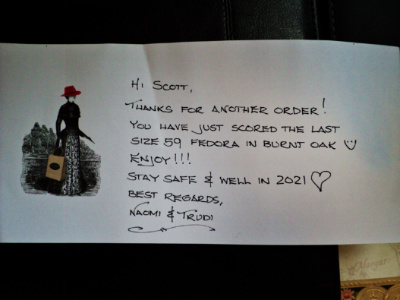 Hi Scott,
Thanks for another order!
You have just scored the last
size 59 fedora in Burnt Oak
Enjoy!!!
Stay safe & well in 2021
Best regards,
Naomi & Trudi